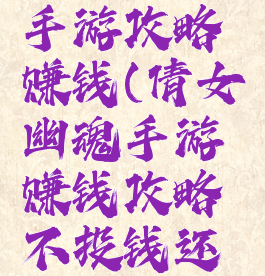 手游攻略
赚钱(倩女
幽魂手游
赚钱攻略
不投钱还